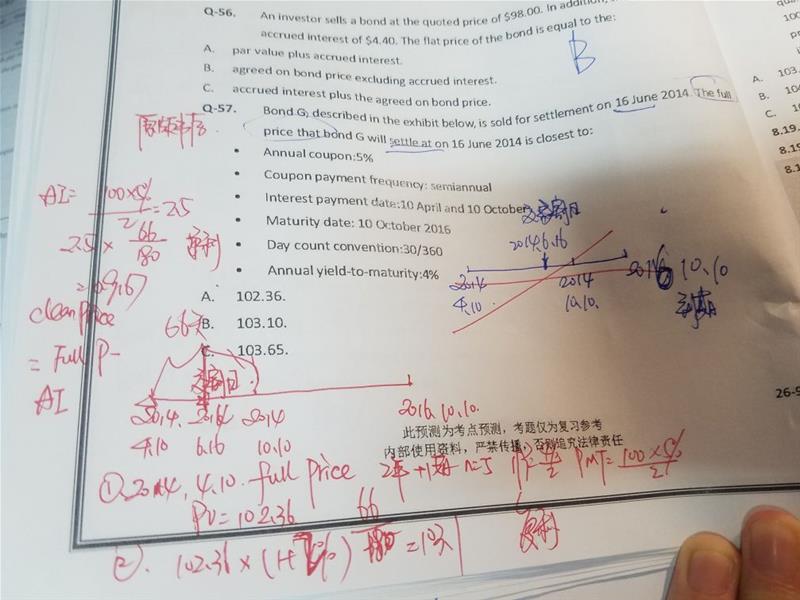 Q-56. An investor sells a bond at the quoted price of $98.00. In addition,
accrued interest of $4.40. The flat price of the bond is equal to the:
A. par value plus accrued interest.
B. agreed on bond price excluding accrued interest.
C. accrued interest plus the agreed on bond price.
B
Q-57. Bond G, described in the exhibit below, is sold for settlement on 16 June 2014. The full
price that bond G will settle at on 16 June 2014 is closest to:
• Annual coupon:5%
• Coupon payment frequency: semiannual
• Interest payment date:10 April and 10 October
• Maturity date: 10 October 2016
• Day count convention:30/360
• Annual yield-to-maturity:4%
A. 102.36.
B. 103.10.
C. 103.65.
AI= 100×5% / 2 =2.5
2.5 × 66 / 180
clean price
= Full P -
AI
66天
交割日
2014.6.16
2014 2014
4.10 10.10.
10.10
交割日
2014. 2014 2014 2016.10.10.
4.10 6.16 10.10
此预测为考点预测，考题仅为复习参考
内部使用资料，严禁传播，否则追究法律责任
26-9
① 2014. 4.10. full price N=5 PMT= 100×5% / 2
PV=102.36
66
②. 102.36 × (1+ 2%) 180 =103
复利
A. 103.
B. 104
C. 10
8.19.
8.19
8.1